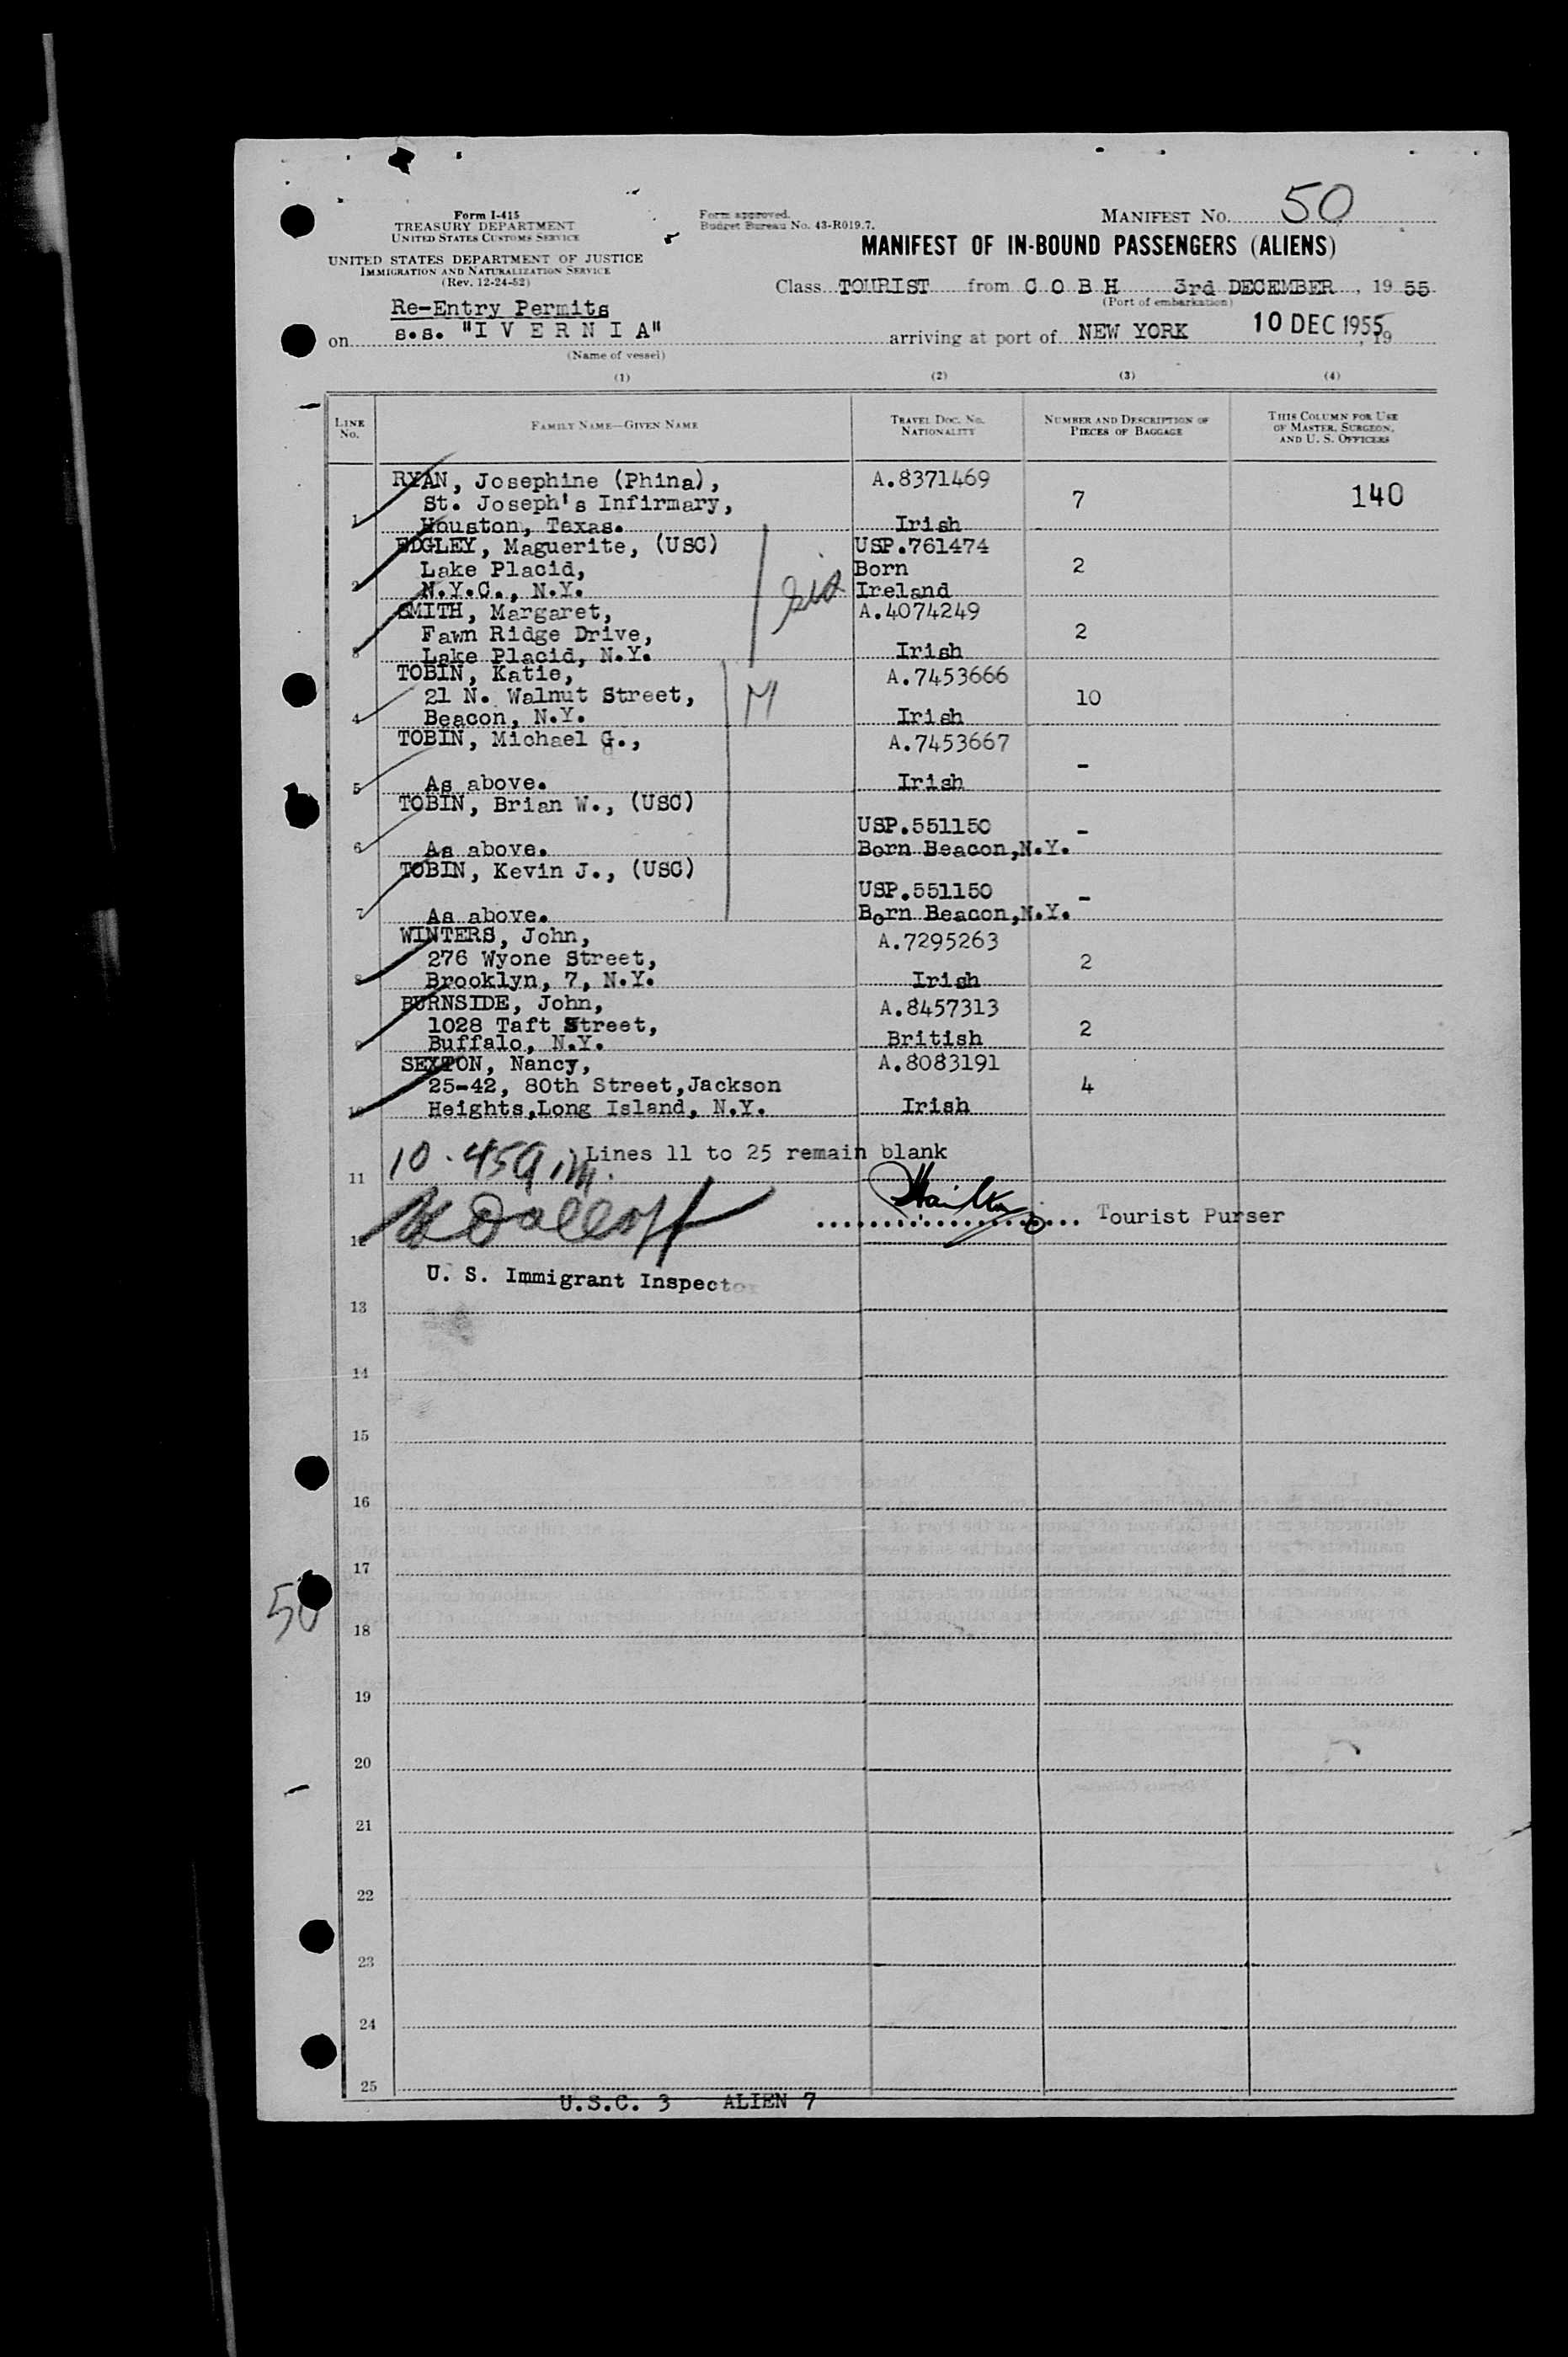 Form I-415
TREASURY DEPARTMENT
UNITED STATES CUSTOMS SERVICE
UNITED STATES DEPARTMENT OF JUSTICE
IMMIGRATION AND NATURALIZATION SERVICE
(Rev. 12-24-52)
Form approved.
Budget Bureau No. 43-R019.7.
MANIFEST NO. 50
MANIFEST OF IN-BOUND PASSENGERS (ALIENS)
Class TOURIST from C O B H 3rd DECEMBER, 19 55
(Port of embarkation)
Re-Entry Permits
on s.s. "I V E R N I A" arriving at port of NEW YORK 10 DEC 1955, 19
(Name of vessel)
(1) (2) (3) (4)
LINE NO. FAMILY NAME—GIVEN NAME TRAVEL DOC. NO. NATIONALITY NUMBER AND DESCRIPTION OF PIECES OF BAGGAGE THIS COLUMN FOR USE OF MASTER, SURGEON, AND U. S. OFFICERS
RYAN, Josephine (Phina), A.8371469
St. Joseph's Infirmary, 7 140
1 Houston, Texas. Irish
EDGLEY, Maguerite, (USC) USP.761474
Lake Placid, Born 2
2 N.Y.C., N.Y. Ireland
SMITH, Margaret, A.4074249
Fawn Ridge Drive, 2
3 Lake Placid, N.Y. Irish
TOBIN, Katie, A.7453666
21 N. Walnut Street, M 10
4 Beacon, N.Y. Irish
TOBIN, Michael G., A.7453667
-
5 As above. Irish
TOBIN, Brian W., (USC)
USP.551150 -
6 As above. Born Beacon,N.Y.
TOBIN, Kevin J., (USC)
USP.551150 -
7 As above. Born Beacon,N.Y.
WINTERS, John, A.7295263
276 Wyone Street, 2
8 Brooklyn, 7, N.Y. Irish
BURNSIDE, John, A.8457313
1028 Taft Street, 2
9 Buffalo, N.Y. British
SEXTON, Nancy, A.8083191
25-42, 80th Street,Jackson 4
10 Heights,Long Island, N.Y. Irish
10.45am. Lines 11 to 25 remain blank
11
Tourist Purser
12
U. S. Immigrant Inspector
13
14
15
16
17
50
18
19
20
21
22
23
24
25
U.S.C. 3 ALIEN 7